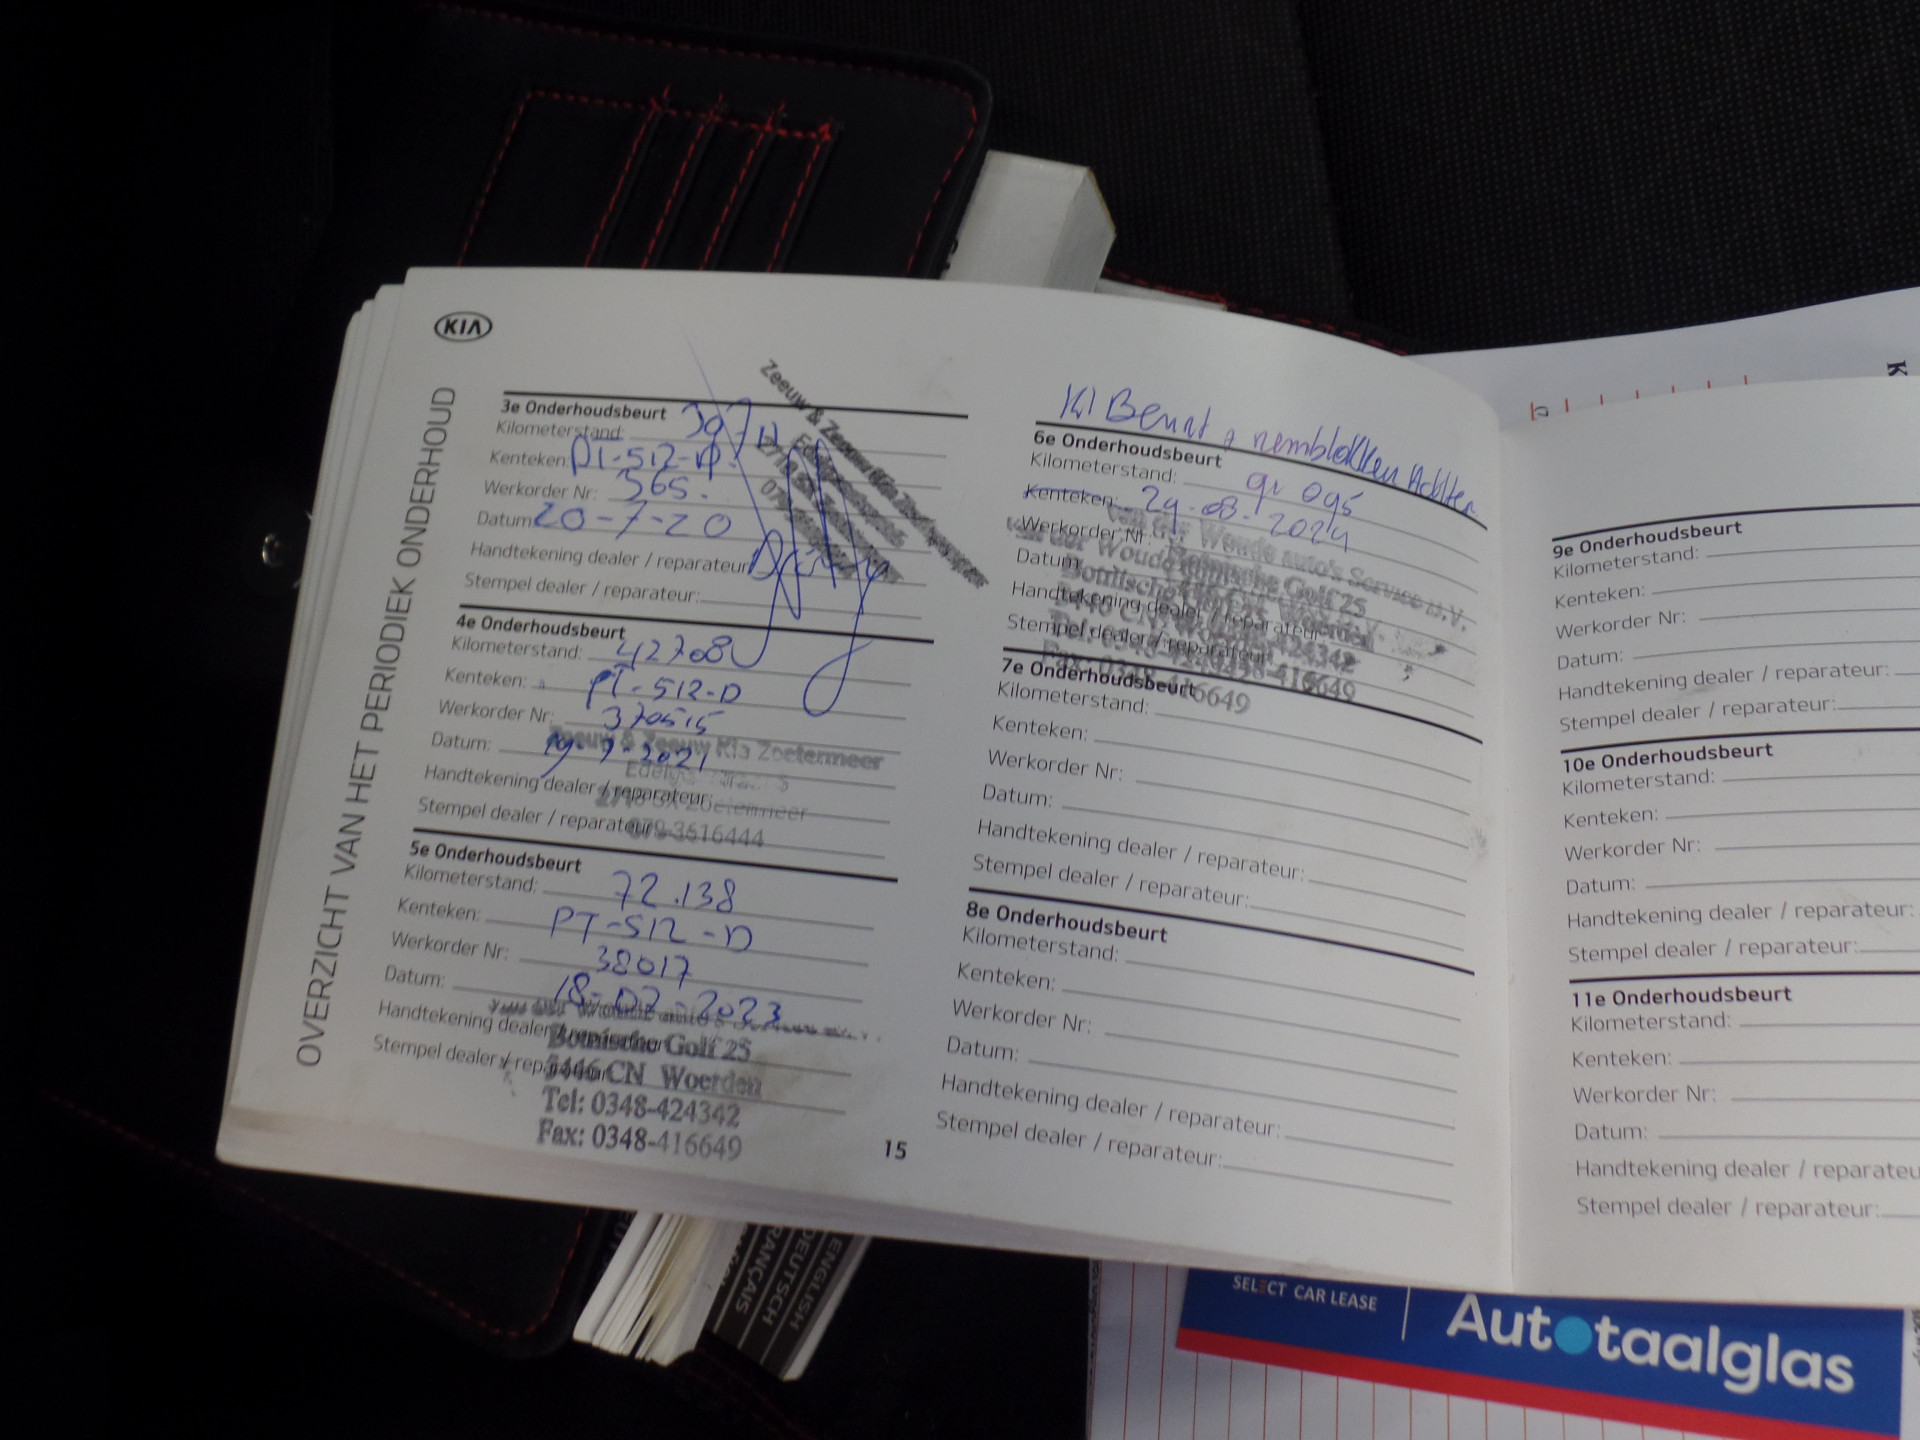 KIA
OVERZICHT VAN HET PERIODIEK ONDERHOUD
3e Onderhoudsbeurt
Kilometerstand:
Kenteken:
Werkorder Nr: 365.
Datum: 20-7-20
Handtekening dealer / reparateur:
Stempel dealer / reparateur:
Zeeuw & Zeeuw Kia
4e Onderhoudsbeurt
Kilometerstand: 42708
Kenteken: PT-512-D
Werkorder Nr: 370515
Datum: 19-7-2021
Handtekening dealer / reparateur:
Stempel dealer / reparateur:
Zeeuw & Zeeuw Kia Zoetermeer
Zoetermeer
079-3616444
5e Onderhoudsbeurt
Kilometerstand: 72.138
Kenteken: PT-512-D
Werkorder Nr: 38017
Datum: 18-07-2023
Handtekening dealer / reparateur:
Stempel dealer / reparateur:
Golf 25
3446 CN Woerden
Tel: 0348-424342
Fax: 0348-416649
15
Kl Beurt + remblokken Achter
6e Onderhoudsbeurt
Kilometerstand: 91 095
Kenteken: 29-08-2024
Werkorder Nr:
Datum:
Handtekening dealer / reparateur:
Stempel dealer / reparateur:
van der Woude auto's Service B.V.
Golf 25
7e Onderhoudsbeurt
Kilometerstand:
Kenteken:
Werkorder Nr:
Datum:
Handtekening dealer / reparateur:
Stempel dealer / reparateur:
8e Onderhoudsbeurt
Kilometerstand:
Kenteken:
Werkorder Nr:
Datum:
Handtekening dealer / reparateur:
Stempel dealer / reparateur:
9e Onderhoudsbeurt
Kilometerstand:
Kenteken:
Werkorder Nr:
Datum:
Handtekening dealer / reparateur:
Stempel dealer / reparateur:
10e Onderhoudsbeurt
Kilometerstand:
Kenteken:
Werkorder Nr:
Datum:
Handtekening dealer / reparateur:
Stempel dealer / reparateur:
11e Onderhoudsbeurt
Kilometerstand:
Kenteken:
Werkorder Nr:
Datum:
Handtekening dealer / reparateu
Stempel dealer / reparateur:
ENGLISH
DEUTSCH
FRANÇAIS
SELECT CAR LEASE
Autotaalglas